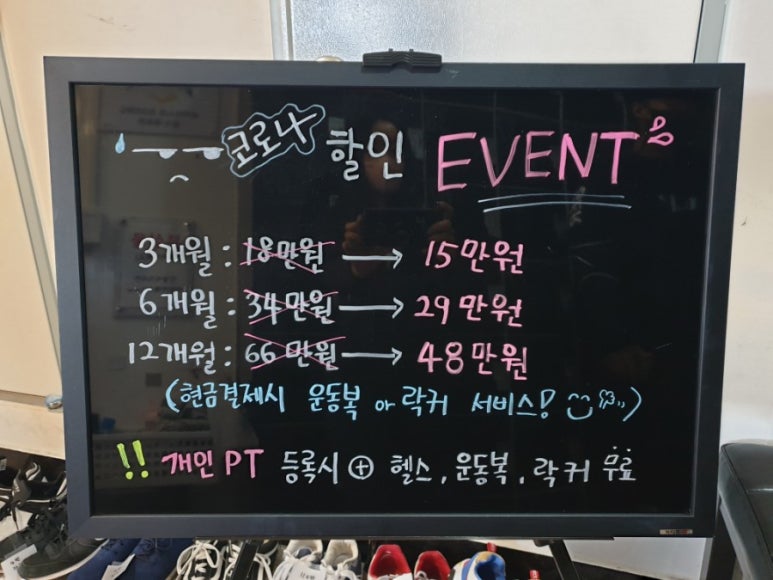 코로나 할인 EVENT
3개월 : 18만원 → 15만원
6개월 : 34만원 → 29만원
12개월 : 66만원 → 48만원
(현금결제시 운동복 or 락커 서비스!)
!! 개인 PT 등록시 ⊕ 헬스, 운동복, 락커 무료